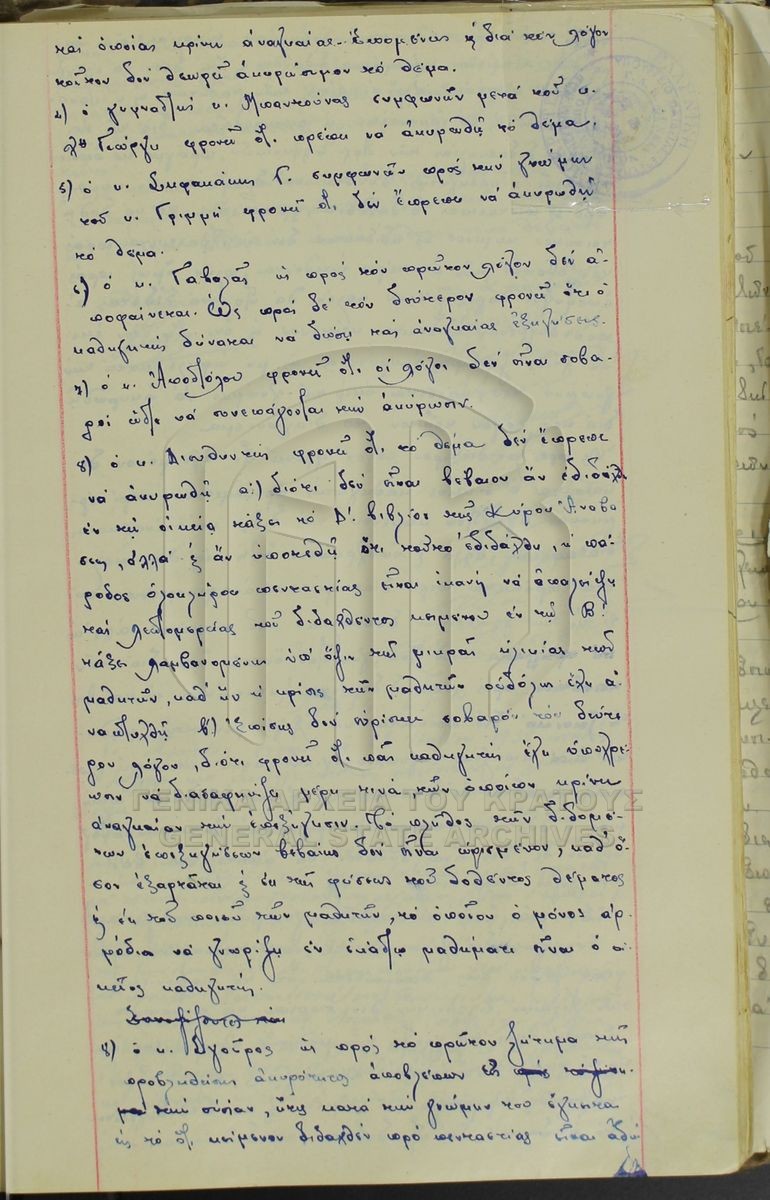 καὶ ὁποίας κρίνει ἀναγκαίας. Ἑπομένως ἢ διὰ τὸν λόγον
τοῦτον δὲν θεωρεῖ ἀκυρώσιμον τὸ θέμα.
4) ὁ γυμναστὴς κ. συμφωνῶν μετὰ τοῦ κ.
Γιώργη φρονεῖ ὅτι πρέπει νὰ ἀκυρωθῇ τὸ θέμα.
5) ὁ κ. Γ. συμφωνῶν πρὸς τὴν γνώμην
τοῦ κ. Γριμμῆ φρονεῖ ὅτι δὲν ἔπρεπε νὰ ἀκυρωθῇ
τὸ θέμα.
6) ὁ κ. Γαβαλᾶς ὡς πρὸς τὸν πρῶτον λόγον δὲν ἀ-
ποφαίνεται. Ὡς πρὸς δὲ τὸν δεύτερον φρονεῖ ὅτι ὁ
καθηγητὴς δύναται νὰ δώσῃ τὰς ἀναγκαίας ἐξηγήσεις.
7) ὁ κ. Ἀποστόλου φρονεῖ ὅτι οἱ λόγοι δὲν εἶναι σοβα-
ροὶ ὥστε νὰ συνεπάγονται τὴν ἀκύρωσιν.
8) ὁ κ. Διευθυντὴς φρονεῖ ὅτι τὸ θέμα δὲν ἔπρεπε
νὰ ἀκυρωθῇ α΄) διότι δὲν εἶναι βέβαιον ἂν ἐδιδάχθη
ἐν τῇ οἰκείᾳ τάξει τὸ Δ΄. βιβλίον τῆς Κύρου Ἀναβά
σεως, ἀλλὰ ἢ ἂν ὑποτεθῇ ὅτι τοῦτο ἐδιδάχθη, ἡ πά-
ροδος ὁλοκλήρου πενταετίας εἶναι ἱκανὴ νὰ ἀπαλείψῃ
τὰς λεπτομερείας τοῦ διδαχθέντος κειμένου ἐν τῇ Β΄.
τάξει λαμβανομένης ὑπ' ὄψιν τῆς μικρᾶς ἡλικίας τῶν
μαθητῶν, καθ' ἣν ἡ κρίσις τῶν μαθητῶν οὐδόλως ἔχει ἀ-
ναπτυχθῆ β΄) Ἐπίσης δὲν εὑρίσκει σοβαρὸν τὸν δεύτε
ρον λόγον, διότι φρονεῖ ὅτι πᾶς καθηγητὴς ἔχει ὑποχρέ-
ωσιν νὰ διασαφηνίζῃ μέρη τινὰ τῶν ὁποίων κρίνει
ἀναγκαίαν τὴν ἐπεξήγησιν. Τὸ πλῆθος τῶν διδομέ-
νων ἐπεξηγήσεων βεβαίως δὲν εἶναι ὡρισμένον, καθ' ὅ-
σον ἐξαρτᾶται ἢ ἐκ τῆς φύσεως τοῦ δοθέντος θέματος
ἢ ἐκ τοῦ ποιοῦ τῶν μαθητῶν, τὸ ὁποῖον ὁ μόνος ἁρ-
μόδιος νὰ γνωρίζῃ ἐν ἑκάστῳ μαθήματι εἶναι ὁ οἰ-
κεῖος καθηγητής.
8) ὁ κ. Σγοῦρος ὡς πρὸς τὸ πρῶτον ζήτημα τῆς
προβληθείσης ἀκυρότητος ἀποβλέπων εἰς
τὴν οὐσίαν, ἥτις κατὰ τὴν γνώμην του ἔγκειται
εἰς τὸ ὅτι κείμενον διδαχθὲν πρὸ πενταετίας εἶναι
ΓΕΝΙΚΑ ΑΡΧΕΙΑ ΤΟΥ ΚΡΑΤΟΥΣ
GENERAL STATE ARCHIVES